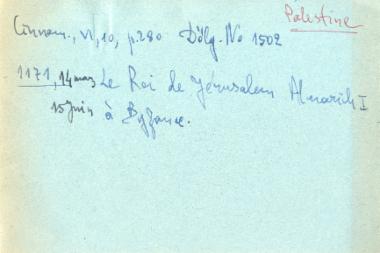 Palestine
Cinnam., VI, 10, p. 280 Dölg. No 1502
1171, 14 mars Le Roi de Jérusalem Almarich I
15 Juin à Byzance.